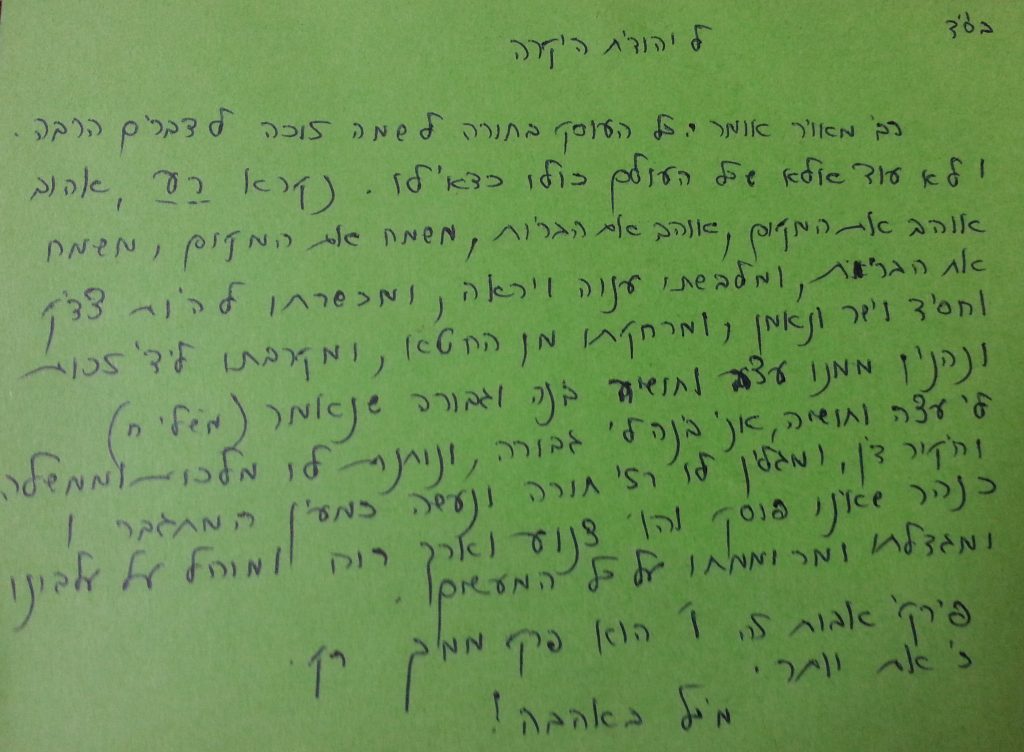 בס"ד
ליהודית היקרה
רבי מאיר אומר: כל העוסק בתורה לשמה זוכה לדברים הרבה.
ולא עוד אלא שכל העולם כולו כדאי לו. נקרא רֵעַ, אהוב
אוהב את המקום, אוהב את הבריות, משמח את המקום, משמח
את הבריות, ומלבשתו ענוה ויראה, ומכשרתו להיות צדיק
וחסיד וישר ונאמן, ומרחקתו מן החטא, ומקרבתו לידי זכות
ונהנין ממנו עצה ותושיה בינה וגבורה שנאמר (משלי ח)
לי עצה ותושיה, אני בינה לי גבורה, ונותנת לו מלכות וממשלה
וחיקור דין, ומגלין לו רזי תורה ונעשה כמעין המתגבר ו
כנהר שאינו פוסק והוי צנוע וארך רוח ומוחל על עלבונו
ומגדלתו ומרוממתו על כל המעשים.
פירקי אבות זה ו' הוא פרק ממך רק.
כי את יותר.
מיכל באהבה!